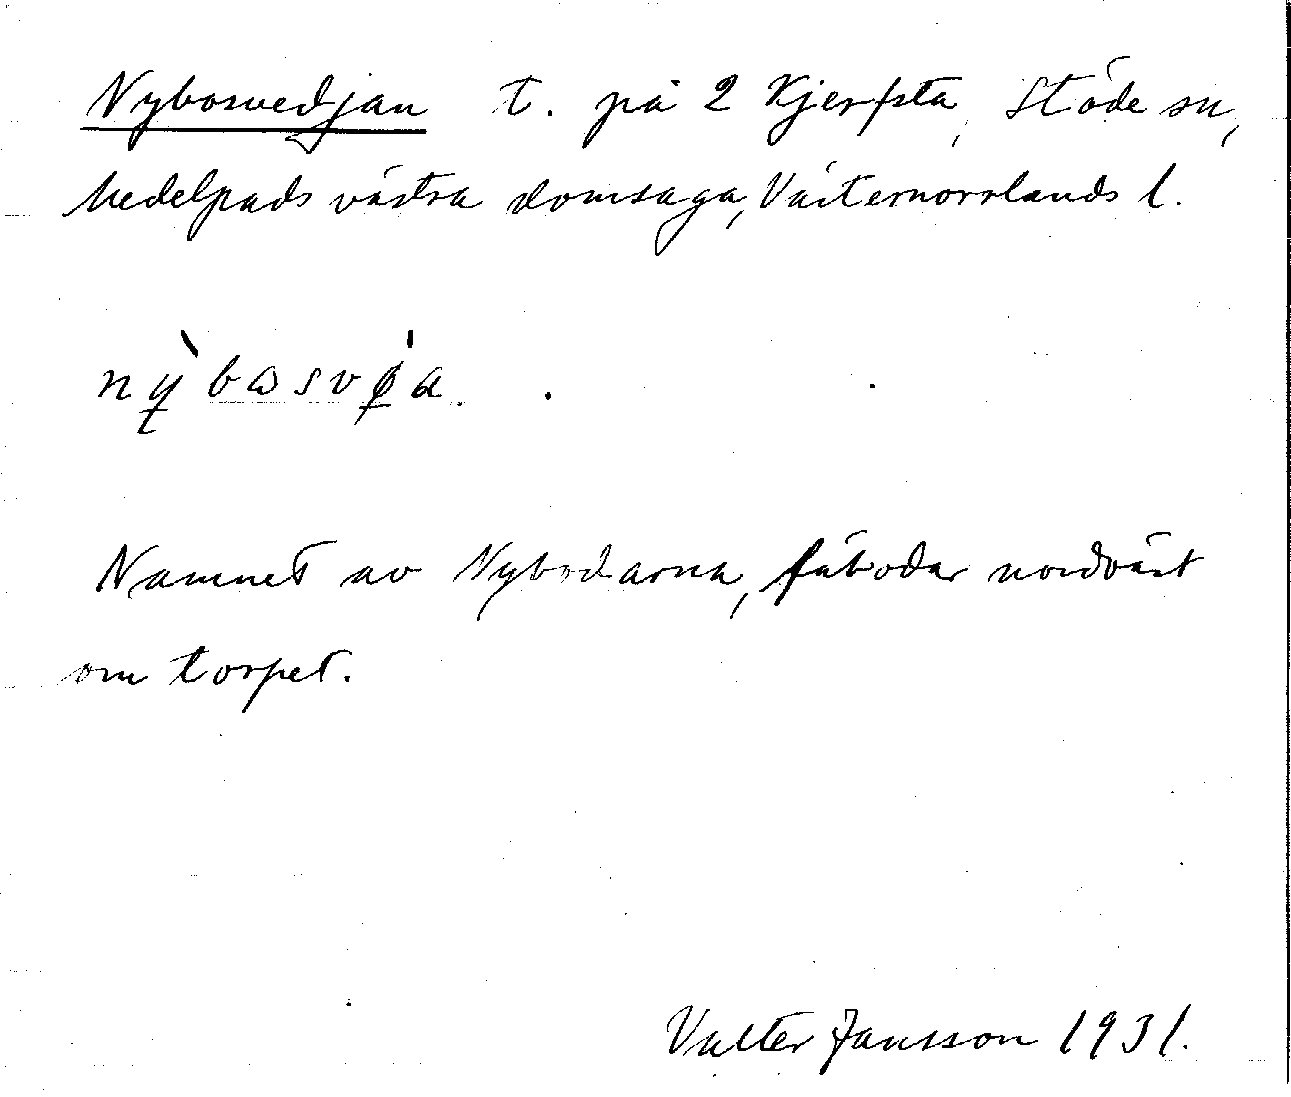 Nybosvedjan t. på 2 Kjerfsta, Stöde sn,
Medelpads västra domsaga, Västernorrlands l.
Namnet av Nybodarna, fäbodar nordväst
om torpet.
Valter Jansson 1931.